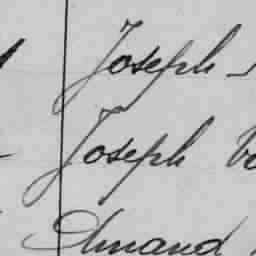 Joseph
Joseph
Amand